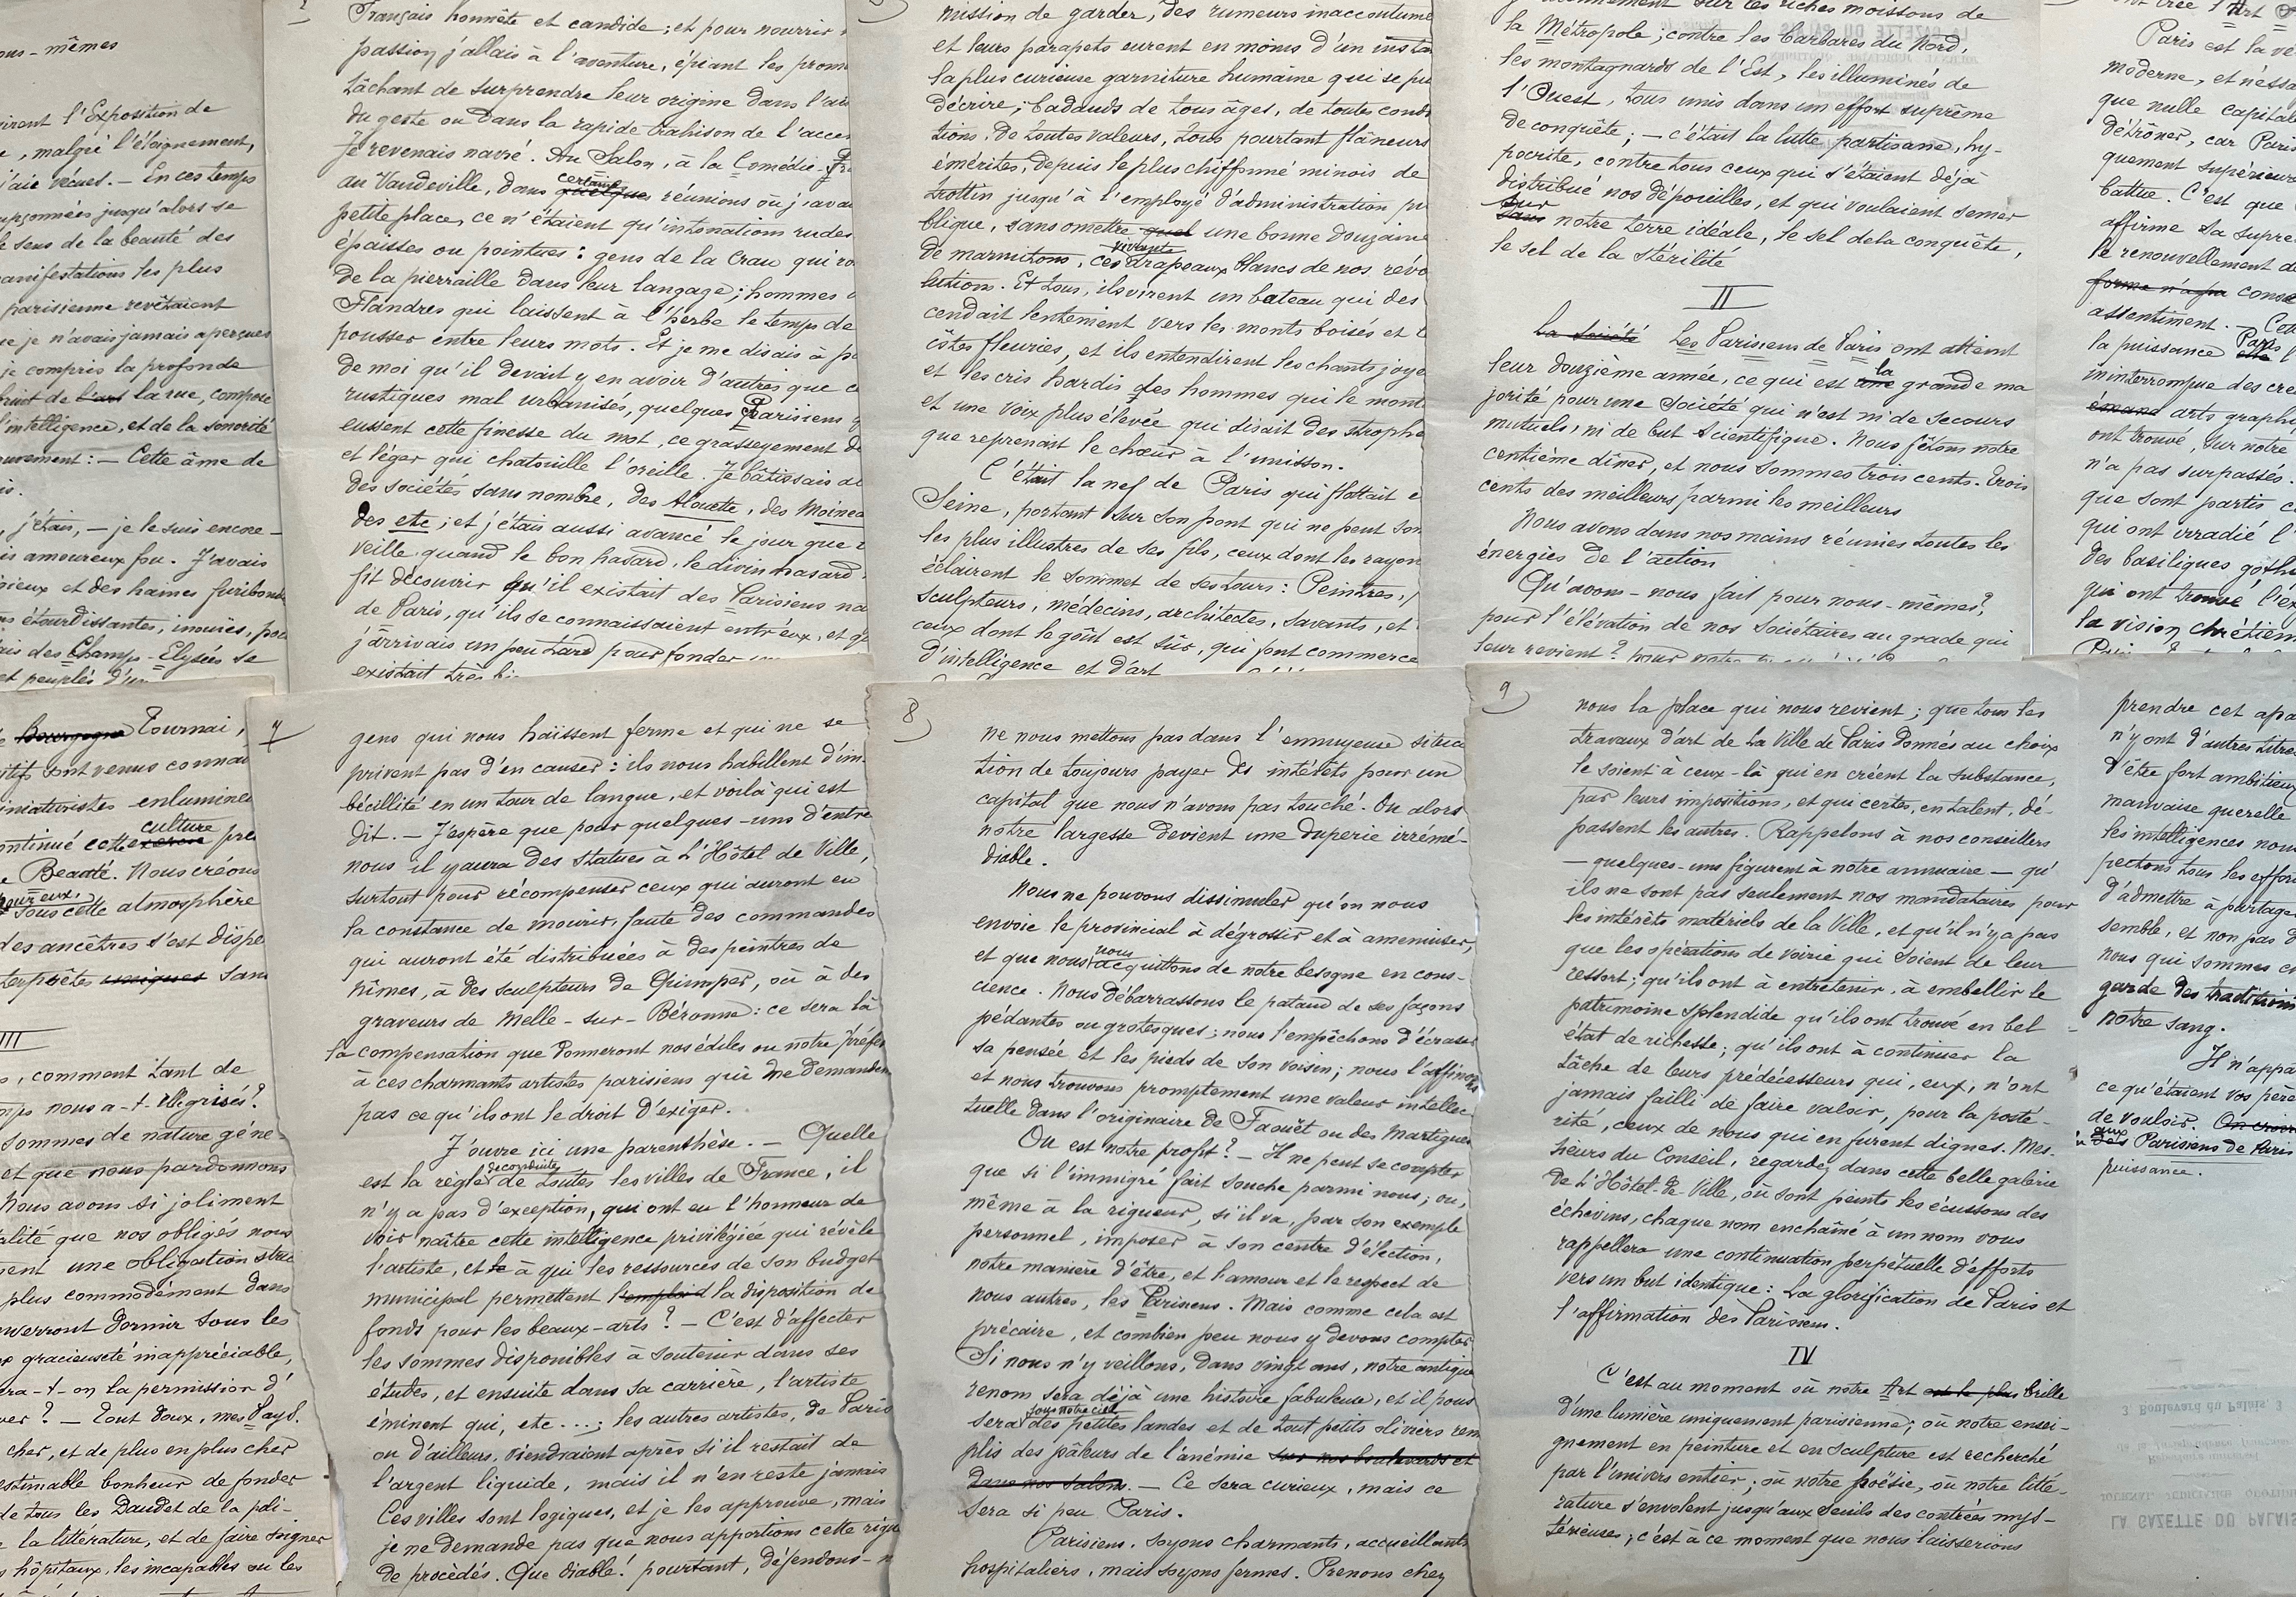 ous-mêmes
irent l'Exposition de
, malgré l'éloignement,
j'aie vécues. — En ces temps
upçonnées jusqu'alors se
le sens de la beauté des
manifestations les plus
parisienne revêtaient
ue je n'avais jamais aperçues
je compris la profonde
bruit de l'art la rue, composé
l'intelligence, et de la sonorité
ouvement : — Cette âme de
is.
, j'étais, — je le suis encore —
is amoureux fou. J'avais
gieux et des haines furibondes
ns étourdissantes, inouïes, pou
ais des Champs-Elysées se
et peuplés d'un
Français honnête et candide ; et pour nourrir
passion j'allais à l'aventure, épiant les prom
tâchant de surprendre leur origine dans l'ai
du geste ou dans la rapide trahison de l'accen
Je revenais navré. Au Salon, à la Comédie-Fr
certaines
au Vaudeville, dans quelques réunions où j'avai
petite place, ce n'étaient qu'intonations rudes
épaisses ou pointues : gens de la Crau qui ro
de la pierraille dans leur langage ; hommes
Flandres qui laissent à l'herbe le temps de
pousser entre leurs mots. Et je me disais à p
de moi qu'il devait y en avoir d'autres que c
rustiques mal urbanisés, quelques Parisiens q
eussent cette finesse du mot, ce grasseyement d
et léger qui chatouille l'oreille. Je bâtissais al
des sociétés sans nombre, des Alouette, des Moinea
des etc ; et j'étais aussi avancé le jour que
veille quand le bon hasard, le divin hasard
fit découvrir qu'il existait des Parisiens na
de Paris, qu'ils se connaissaient entr'eux, et q
j'arrivais un peu tard pour fonder
existait très bi
mission de garder, des rumeurs inaccoutumé
et leurs parapets eurent en moins d'un insta
la plus curieuse garniture humaine qui se pu
décrire ; badauds de tous âges, de toutes condi
tions, de toutes valeurs, tous pourtant flâneurs
émérites, depuis le plus chiffonné minois de
trottin jusqu'à l'employé d'administration pu
blique, sans omettre quel une bonne douzaine
vivants
de marmitons, ces drapeaux blancs de nos révo
lutions. Et tous, ils virent un bateau qui des
cendait lentement vers les monts boisés et l
côtes fleuries, et ils entendirent les chants joye
et les cris hardis des hommes qui le mont
et une voix plus élevée qui disait des strophe
que reprenait le chœur à l'unisson.
C'était la nef de Paris qui flottait e
Seine, portant sur son pont qui ne peut som
les plus illustres de ses fils, ceux dont les rayon
éclairent le sommet de ses tours : Peintres,
sculpteurs, médecins, architectes, savants, et
ceux dont le goût est sûr, qui font commerce
d'intelligence et d'art
sur les riches moissons de
la Métropole ; contre les barbares du Nord,
les montagnards de l'Est, les illuminés de
l'Ouest, tous unis dans un effort suprême
de conquête ; — c'était la lutte partisane, hy-
pocrite, contre tous ceux qui s'étaient déjà
distribué nos dépouilles, et qui voulaient semer
sur
dans notre terre idéale, le sel de la conquête,
le sel de la stérilité
II
La Société Les Parisiens de Paris ont atteint
la
leur douzième année, ce qui est une grande ma
jorité pour une Société qui n'est ni de secours
mutuels, ni de but scientifique. Nous fêtons notre
centième dîner, et nous sommes trois cents. Trois
cents des meilleurs parmi les meilleurs
Nous avons dans nos mains réunies toutes les
énergies de l'action
Qu'avons-nous fait pour nous-mêmes ?
pour l'élévation de nos sociétaires au grade qui
leur revient ? pour notre
ont créé l'Art
Paris est la vé
moderne, et n'essa
que nulle capitale
détrôner, car Paris
quement supérieure
battue. C'est que
affirme sa supré
le renouvellement d
forme n'a pa conse
assentiment.
Paris
la puissance elle
ininterrompue des cré
émane arts graphi
ont trouvé, sur notre
n'a pas surpassés.
que sont partis c
qui ont irradié l'
des basiliques goth
qui ont trouvé l'ex
la vision chrétien
Bourgogne Tournai,
sont venus connai
miniaturistes enlumine
culture
ontinué cette pre
Beauté. Nous créons
pour eux.
sous cette atmosphère
des ancêtres s'est dispe
terprètes uniques sans
III
, comment tant de
mps nous a-t-il grisés ?
sommes de nature géné-
et que nous pardonnons
Nous avons si joliment
alité que nos obligés nous
vent une obligation stric
plus commodément dans
verront dormir sous les
gracieuseté inappréciable,
ra-t-on la permission d'
ver ? — Tout doux, mes Pays.
cher, et de plus en plus cher
estimable bonheur de fonder
de tous les Daudet de la poli-
la littérature, et de faire soigner
hôpitaux, les incapables ou les
7
gens qui nous haïssent ferme et qui ne se
privent pas d'en causer : ils nous habillent d'im-
bécillité en un tour de langue, et voilà qui est
dit. — J'espère que pour quelques-uns d'entre
nous il y aura des statues à L'Hôtel de Ville,
surtout pour récompenser ceux qui auront eu
la constance de mourir, faute des commandes
qui auront été distribuées à des peintres de
Nîmes, à des sculpteurs de Quimper, où à des
graveurs de Melle-sur-Béronne : ce sera là
la compensation que donneront nos édiles ou notre préfet
à ces charmants artistes parisiens qui ne demandent
pas ce qu'ils ont le droit d'exiger.
J'ouvre ici une parenthèse. — Quelle
de conduite
est la règle de toutes les villes de France, il
n'y a pas d'exception, qui ont eu l'honneur de
voir naître cette intelligence privilégiée qui révèle
l'artiste, et le à qui les ressources de son budget
municipal permettent l'emploi d la disposition de
fonds pour les beaux-arts ? — C'est d'affecter
les sommes disponibles à soutenir dans ses
études, et ensuite dans sa carrière, l'artiste
éminent qui, etc...; les autres artistes, de Paris
ou d'ailleurs, viendraient après si il restait de
l'argent liquide, mais il n'en reste jamais
Ces villes sont logiques, et je les approuve, mais
je ne demande pas que nous apportions cette rigu
de procédés. Que diable ! pourtant, défendons-n
8
ne nous mettons pas dans l'ennuyeuse situa
tion de toujours payer des intérêts pour un
capital que nous n'avons pas touché. Ou alors
notre largesse devient une duperie irrémé-
diable.
Nous ne pouvons dissimuler qu'on nous
envoie le provincial à dégrossir et à amenuiser,
nous
et que nous acquittons de notre besogne en cons-
cience. Nous débarrassons le pataud de ses façons
pédantes ou grotesques ; nous l'empêchons d'écraser
sa pensée et les pieds de son voisin ; nous l'affinons
et nous trouvons promptement une valeur intellec-
tuelle dans l'originaire de Faouët ou des Martigues
Ou est notre profit ? — Il ne peut se compter
que si l'immigré fait souche parmi nous ; ou,
même à la rigueur, si il va, par son exemple
personnel, imposer à son centre d'élection,
notre manière d'être, et l'amour et le respect de
nous autres, les Parisiens. Mais comme cela est
précaire, et combien peu nous y devons compter
Si nous n'y veillons, dans vingt ans, notre antique
renom sera déjà une histoire fabuleuse, et il pous
sous notre ciel
sera des petites landes et de tout petits oliviers rem
plis des pâleurs de l'anémie sur nos boulevards et
dans nos salons. — Ce sera curieux, mais ce
sera si peu Paris.
Parisiens, soyons charmants, accueillants
hospitaliers, mais soyons fermes. Prenons chez
9
nous la place qui nous revient ; que tous les
travaux d'art de La Ville de Paris donnés au choix
le soient à ceux-là qui en créent la substance,
par leurs impositions, et qui certes, en talent, dé-
passent les autres. Rappelons à nos conseillers
— quelques-uns figurent à notre annuaire — qu'
ils ne sont pas seulement nos mandataires pour
les intérêts matériels de la Ville, et qu'il n'y a pas
que les opérations de voirie qui soient de leur
ressort ; qu'ils ont à entretenir, à embellir le
patrimoine splendide qu'ils ont trouvé en bel
état de richesse ; qu'ils ont à continuer la
tâche de leurs prédécesseurs qui, eux, n'ont
jamais failli de faire valoir, pour la posté-
rité, ceux de nous qui en furent dignes. Mes-
sieurs du Conseil, regardez dans cette belle galerie
De L'Hôtel-de Ville, où sont peints les écussons des
échevins, chaque nom enchaîné à un nom vous
rappellera une continuation perpétuelle d'efforts
vers un but identique : La glorification de Paris et
l'affirmation des Parisiens.
IV
C'est au moment où notre Art est le plus brille
d'une lumière uniquement parisienne ; où notre ensei-
gnement en peinture et en sculpture est recherché
par l'univers entier ; où notre poésie, où notre litté-
rature s'envolent jusqu'aux seuils des contrées mys-
térieuses ; c'est à ce moment que nous laisserions
prendre cet apa
n'y ont d'autres titres
d'être fort ambitieux
mauvaise querelle
les intelligences nou
pectons tous les effor
d'admettre à partage
semble, et non pas d
nous qui sommes c
garde des traditions
notre sang.
Il n'appa
ce qu'étaient vos père
de vouloir. On croir
aux
Parisiens de Paris
puissance.
3, Boulevard du Palais, 3
LA GAZETTE DU PALAIS